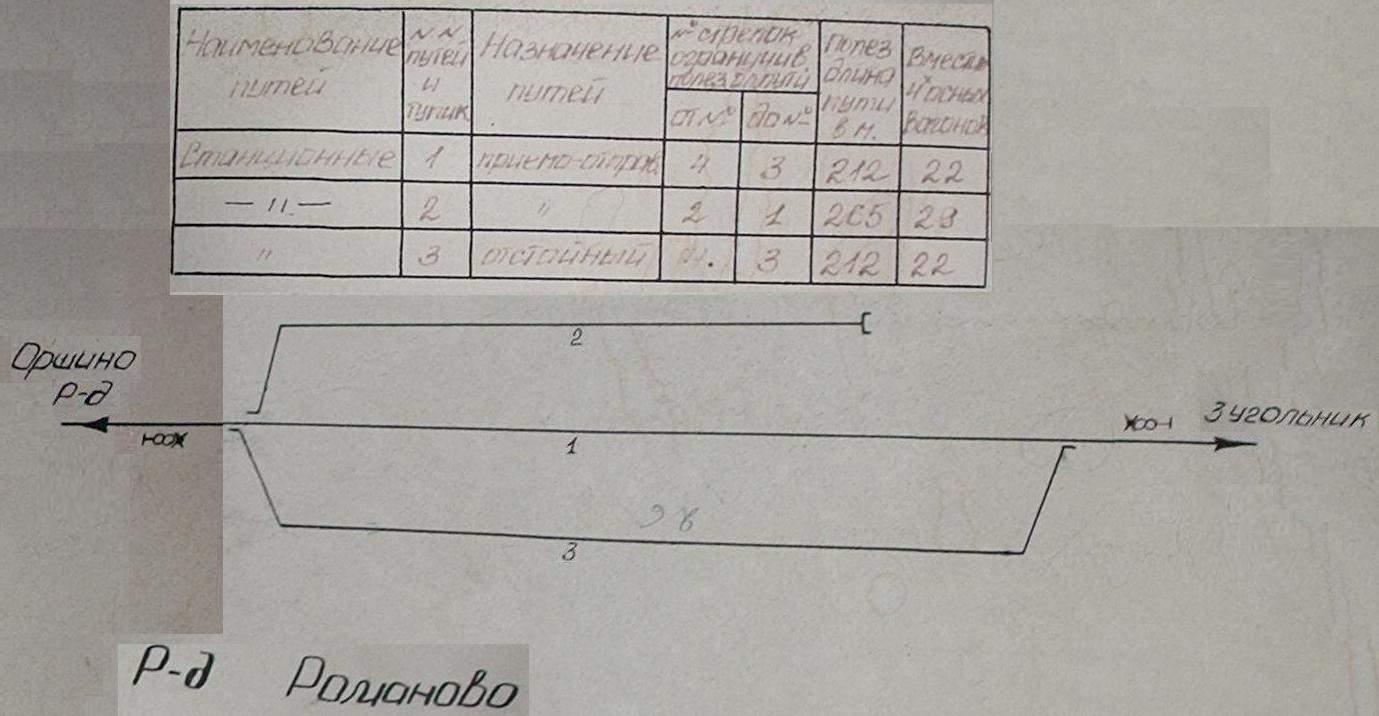 Наименование путей
NN путей и тупик
Назначение путей
№ стрелок огранич полез дл пути
от № до №
Полез длина пути в м.
Вмест 4 осных вагонов
Станционные 1 приемо-отправ. 4 3 212 22
— " — 2 " 2 1 265 29
" 3 отстойный 4. 3 212 22
2
Оршино
Р-д
3 угольник
1
3
Р-д Романово